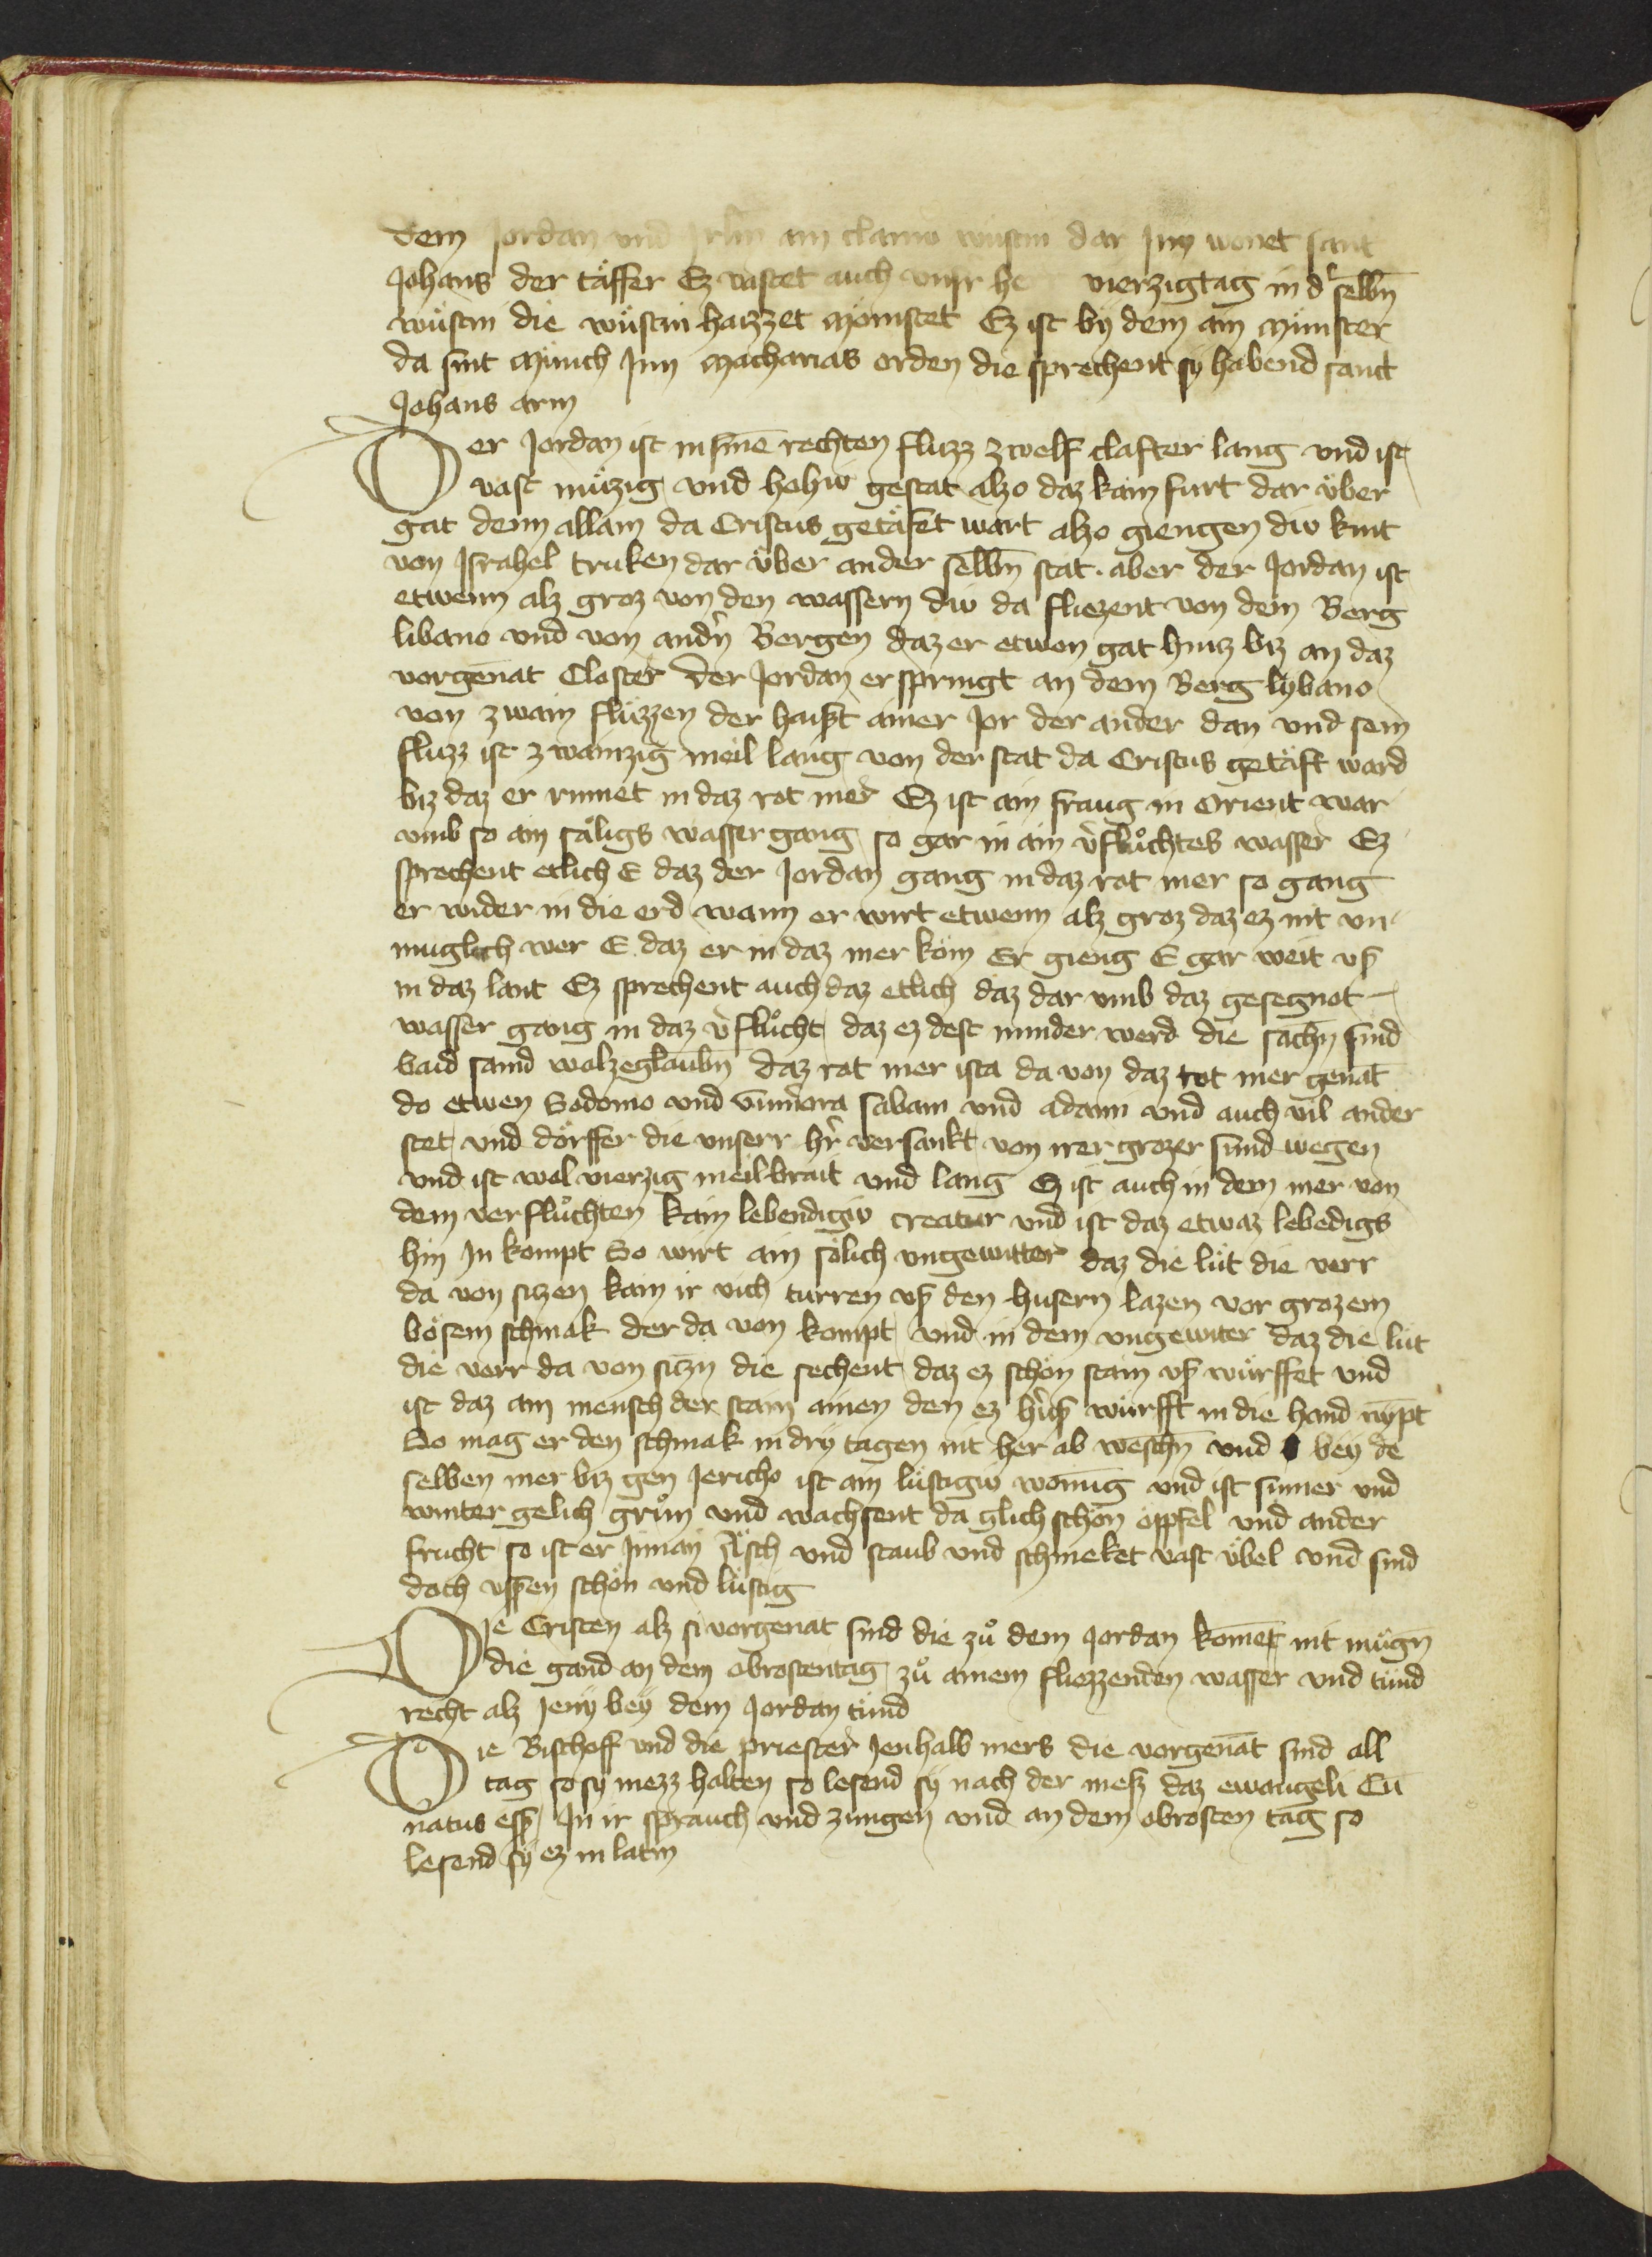 dem Jordan vnd Jrlm ain clainiv wu̇stin dar Jnn wonet sant
Johans der täffer Ez vastet auch vnsr he vierzigtag in d' selbn̄
wüstin die wüstin haizzet Momstet Ez ist by dem ain Münster
da sint Münch Jnn Macharias orden die sprechent sy habend sanct
Johans arm
Der Jordan ist in sinē rechten fluzz zwelf clafter lang vnd ist
vast müzig vnd hohiv gestat alzo daz kain furt dar über
gat denn allain da Cristus getäfet wart alzo giengen div kint
von Jsrahel truken dar über ander selbn̄ stat. aber der Jordan ist
etwenn alz groz von den wassern div da fliezent von dem Berg
libano vnd von andn̄ Bergen daz er etwen gat hintz biz an daz
vorgenāt Closter der Jordan erspringt an dem Berg lybano
von zwain flüzzen der haist ainer Jor der ander dan vnd sein
fluzz ist zwainzig meil lang von der stat da Cristus getäft ward
biz daz er rinnet in daz rot mer Ez ist ain fraug in Orient war
vmb so ain säligs wasser gang so gar in ain v̾flůchtes wasser Ez
sprechent etlich E daz der Jordan gang in daz rot mer so gang
er wider in die erd wann er wirt etwenn alz groz daz ez nit vn
muglich wer E daz er in daz mer köm Er gieng E gar weit vß
in daz lant Ez sprechent auch daz etlich daz dar vmb daz gesegnot
wasser gang in daz v̾flůcht daz ez dest minder werd die sachn̄ sind
baid samd wolzeglaubn̄ daz rot mer ista da von daz rot mer genāt
do etwen Sodomo vnd Gumora sabaim vnd adam vnd auch vil ander
stet vnd dörffer die vnserr hr̄ versankt von irer grozer sünd wegen
vnd ist wol vierzig meil brait vnd lang Ez ist auch in dem mer von
dem verflůchten kain lebendigiv creatur vnd ist daz etwaz lebedigs
hin Jn kompt So wirt ain sölich vngewitter daz die lüt die verr
da von sitzen kain ir vich turren vß den husern lazen vor grozem
bösem schmak der da von kompt vnd in dem vngewiter daz die lüt
die verr da von sitzn̄ die sechent daz ez schön stain vß würffet vnd
ist daz ain mensch der stain ainen den ez h̾uß würfft in die hand nÿpt
So mag er den schmak in dry tagen nit her ab weschn̄ vnd bey de
selben mer biz gen Jericho ist ain lüstigiv wonūg vnd ist sumer vnd
winter gelich grůn vnd wachsent da glich schön öppfel vnd ander
frucht so ist er Jnnan Äsch vnd staub vnd schmeket vast übel vnd sind
doch vssen schön vnd lüstig
Die Cristen alz si vorgenāt sind die zů dem Jordan komēt nit můgn̄
die gand an dem obrostentag zů ainem fliezzenden wasser vnd tůnd
recht alz Jeny bey dem Jordan tůnd
Die Bischoff vnd die priester Jenhalb mers die vorgenāt sind all
tag so sy mezz halten so lesend sy nach der mess daz ewangeli Cū
natus ess̄ Jn ir sprauch vnd zungen vnd an dem obrosten tag so
lesend sy ez in latin